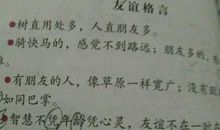 友谊格言
●树直用处多，人直朋友多。
●骑快马的，感觉不到路远；朋友多的，
●有朋友的人，像草原一样宽广；没有
如同巴掌。
●智慧不凭年龄凭心灵，友谊不在一